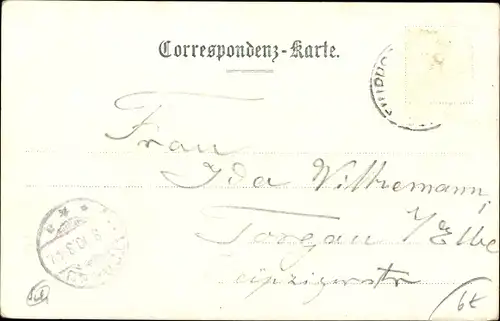 Correspondenz-Karte.
Frau
Ida Wilkemann,
Torgau a/Elbe
Leipzigerstr